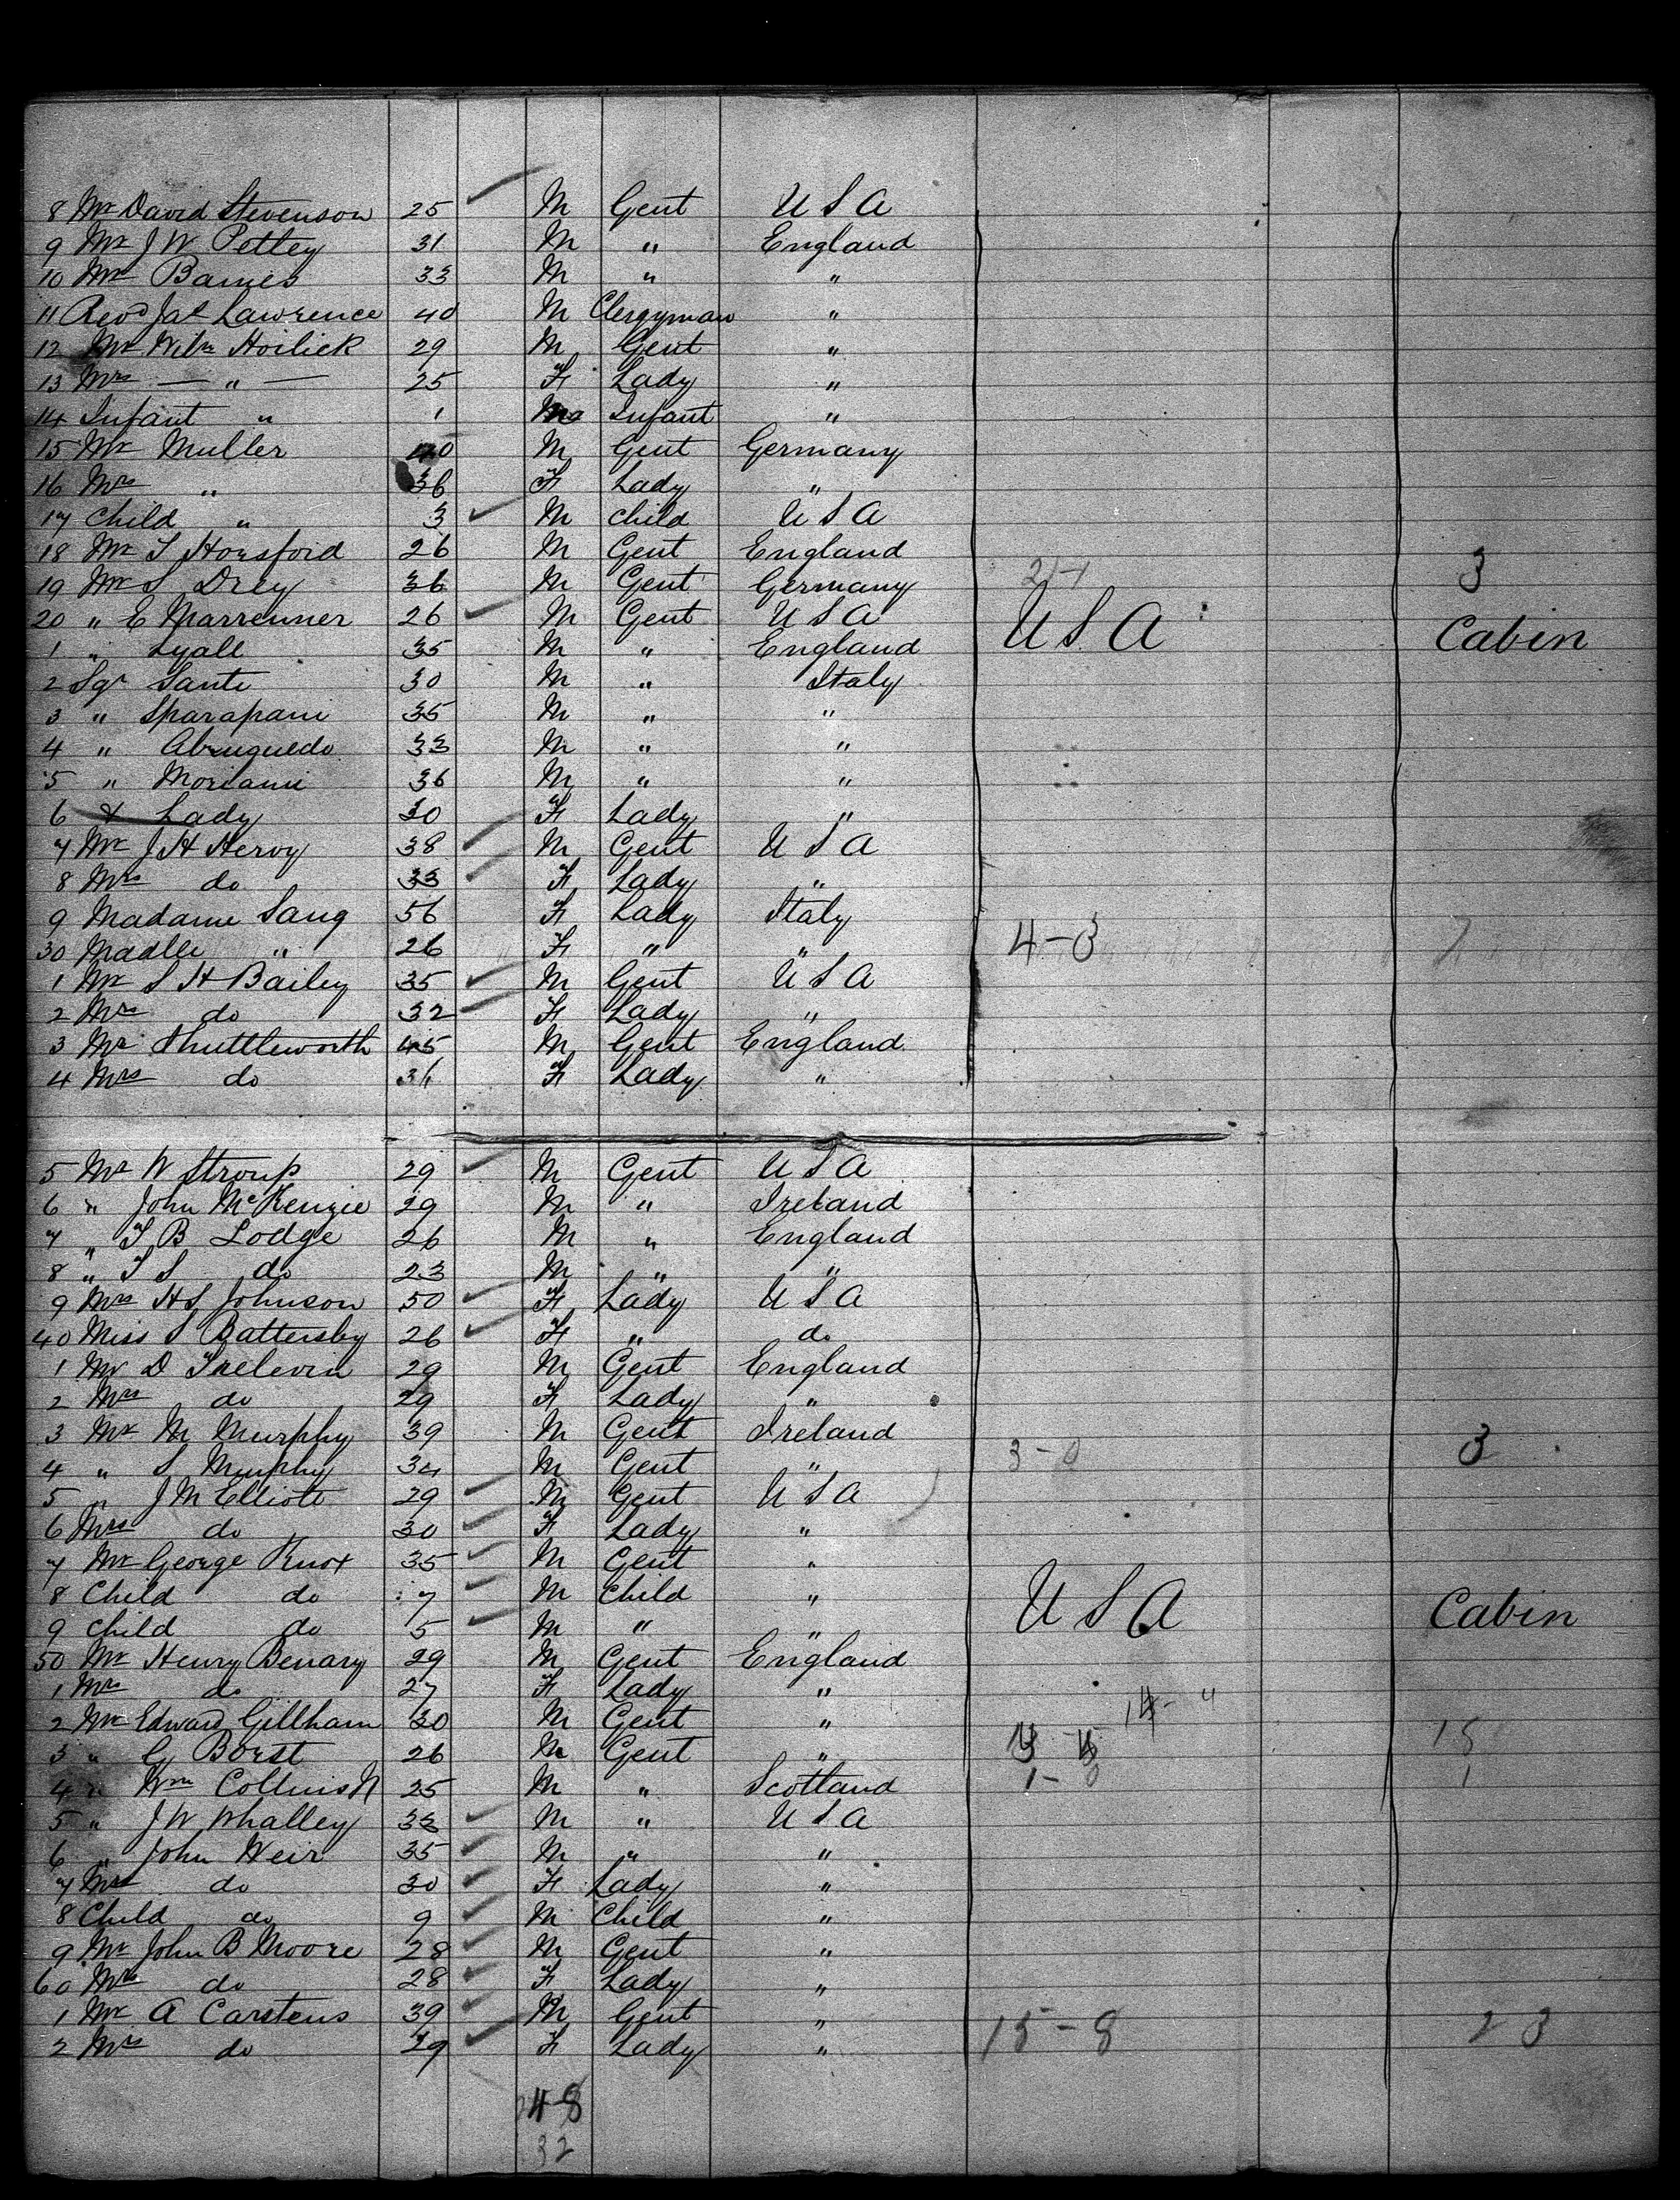 8 Mr David Stevenson 25 M Gent U S A
9 Mr J W Pettey 31 M " England
10 Mr Barnes 33 M " "
11 Revd Jas Lawrence 40 M Clergyman "
12 Mr Wilm Hoilick 29 M Gent "
13 Mrs — " — 25 F Lady "
14 Infant " 1 Infant "
15 Mr Muller 40 M Gent Germany
16 Mrs " 36 F Lady "
17 Child " 3 M Child U S A
18 Mr T Horsford 26 M Gent England
19 Mr S Drey 36 M Gent Germany 3
20 " E Marrenner 26 M Gent U S A U S A Cabin
1 " Lyall 35 M " England
2 Sgr Santi 30 M " Italy
3 " Sparapani 35 M " "
4 " Abrugnedo 33 M " "
5 " Moriami 36 M " "
6 & Lady 30 F Lady "
7 Mr J H Hervy 38 M Gent U S A
8 Mrs do 33 F Lady "
9 Madame Lang 56 F Lady Italy
30 Madlle " 26 F " 4-3 7
1 Mr S H Bailey 35 M Gent U S A
2 Mrs do 32 F Lady "
3 Mr Shuttleworth 45 M Gent England
4 Mrs do 36 F Lady "
5 Mr W Stroup 29 M Gent U S A
6 " John McKenzie 29 M " Ireland
7 " T B Lodge 26 M " England
8 " T S do 23 M " "
9 Mrs H S Johnson 50 F Lady U S A
40 Miss S Battersby 26 F " do
1 Mr D Trelevin 29 M Gent England
2 Mrs do 29 F Lady "
3 Mr M Murphy 39 M Gent Ireland
4 " S Murphy 34 M Gent " 3-0 3
5 " J M Elliott 29 M Gent U S A
6 Mrs do 30 F Lady "
7 Mr George Knox 35 M Gent "
8 Child do 7 M Child "
9 Child do 5 M " " U S A Cabin
50 Mr Henry Benary 29 M Gent England
1 Mrs do 27 F Lady "
2 Mr Edward Gillham 30 M Gent "
3 " G Borst 26 M Gent " 15
4 " Wm Collins 25 M " Scotland 1-0 1
5 " J W Whalley 33 M " U S A
6 " John Weir 35 M " "
7 Mrs do 30 F Lady "
8 Child do 9 M Child "
9 Mr John B Moore 28 M Gent "
60 Mrs do 28 F Lady "
1 Mr A Carstens 39 M Gent "
2 Mrs do 29 F Lady " 15-8 23
48
32